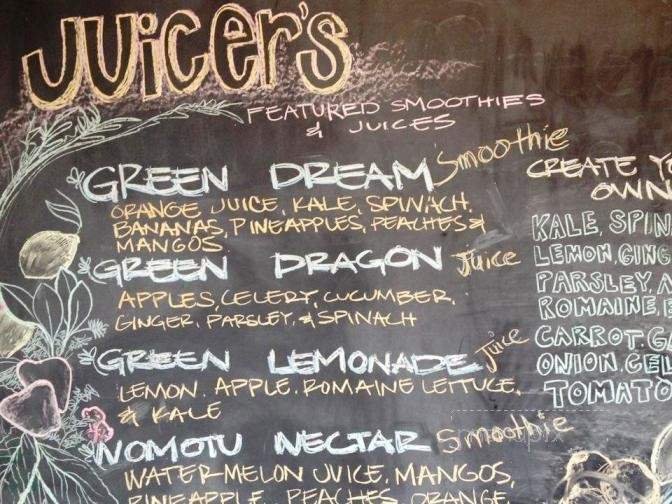 JUICER'S
FEATURED SMOOTHIES
& JUICES
GREEN DREAM Smoothie
ORANGE JUICE, KALE, SPINACH,
BANANAS, PINEAPPLES, PEACHES &
MANGOS
GREEN DRAGON Juice
APPLES, CELERY, CUCUMBER,
GINGER, PARSLEY, & SPINACH
GREEN LEMONADE Juice
LEMON, APPLE, ROMAINE LETTUCE,
& KALE
NOMOTU NECTAR Smoothie
WATERMELON JUICE, MANGOS,
PINEAPPLE, PEACHES, ORANGE,
CREATE
OWN
KALE, SPIN
LEMON, GING
PARSLEY, A
ROMAINE,
CARROT, GA
ONION, CEL
TOMATO